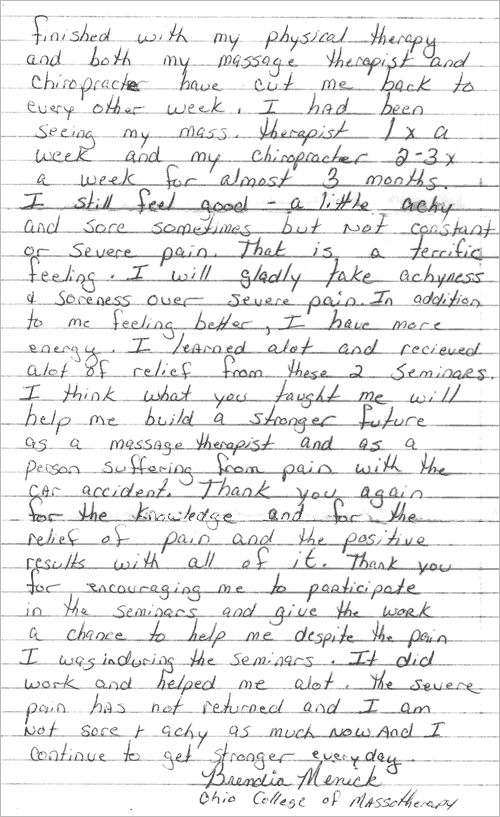 finished with my physical therapy
and both my massage therapist and
chiropracter have cut me back to
every other week. I had been
seeing my mass. therapist 1x a
week and my chiropracter 2-3x
a week for almost 3 months.
I still feel good - a little achy
and sore sometimes but not constant
or severe pain. That is a terrific
feeling. I will gladly take achyness
& soreness over severe pain. In addition
to me feeling better, I have more
energy. I learned alot and recieved
alot of relief from these 2 seminars.
I think what you taught me will
help me build a stronger future
as a massage therapist and as a
person suffering from pain with the
car accident. Thank you again
for the knowledge and for the
relief of pain and the positive
results with all of it. Thank you
for encouraging me to participate
in the seminars and give the work
a chance to help me despite the pain
I was in during the seminars. It did
work and helped me alot. The severe
pain has not returned and I am
not sore + achy as much now and I
continue to get stronger everyday.
Brendia Menick
Ohio College of Massotherapy